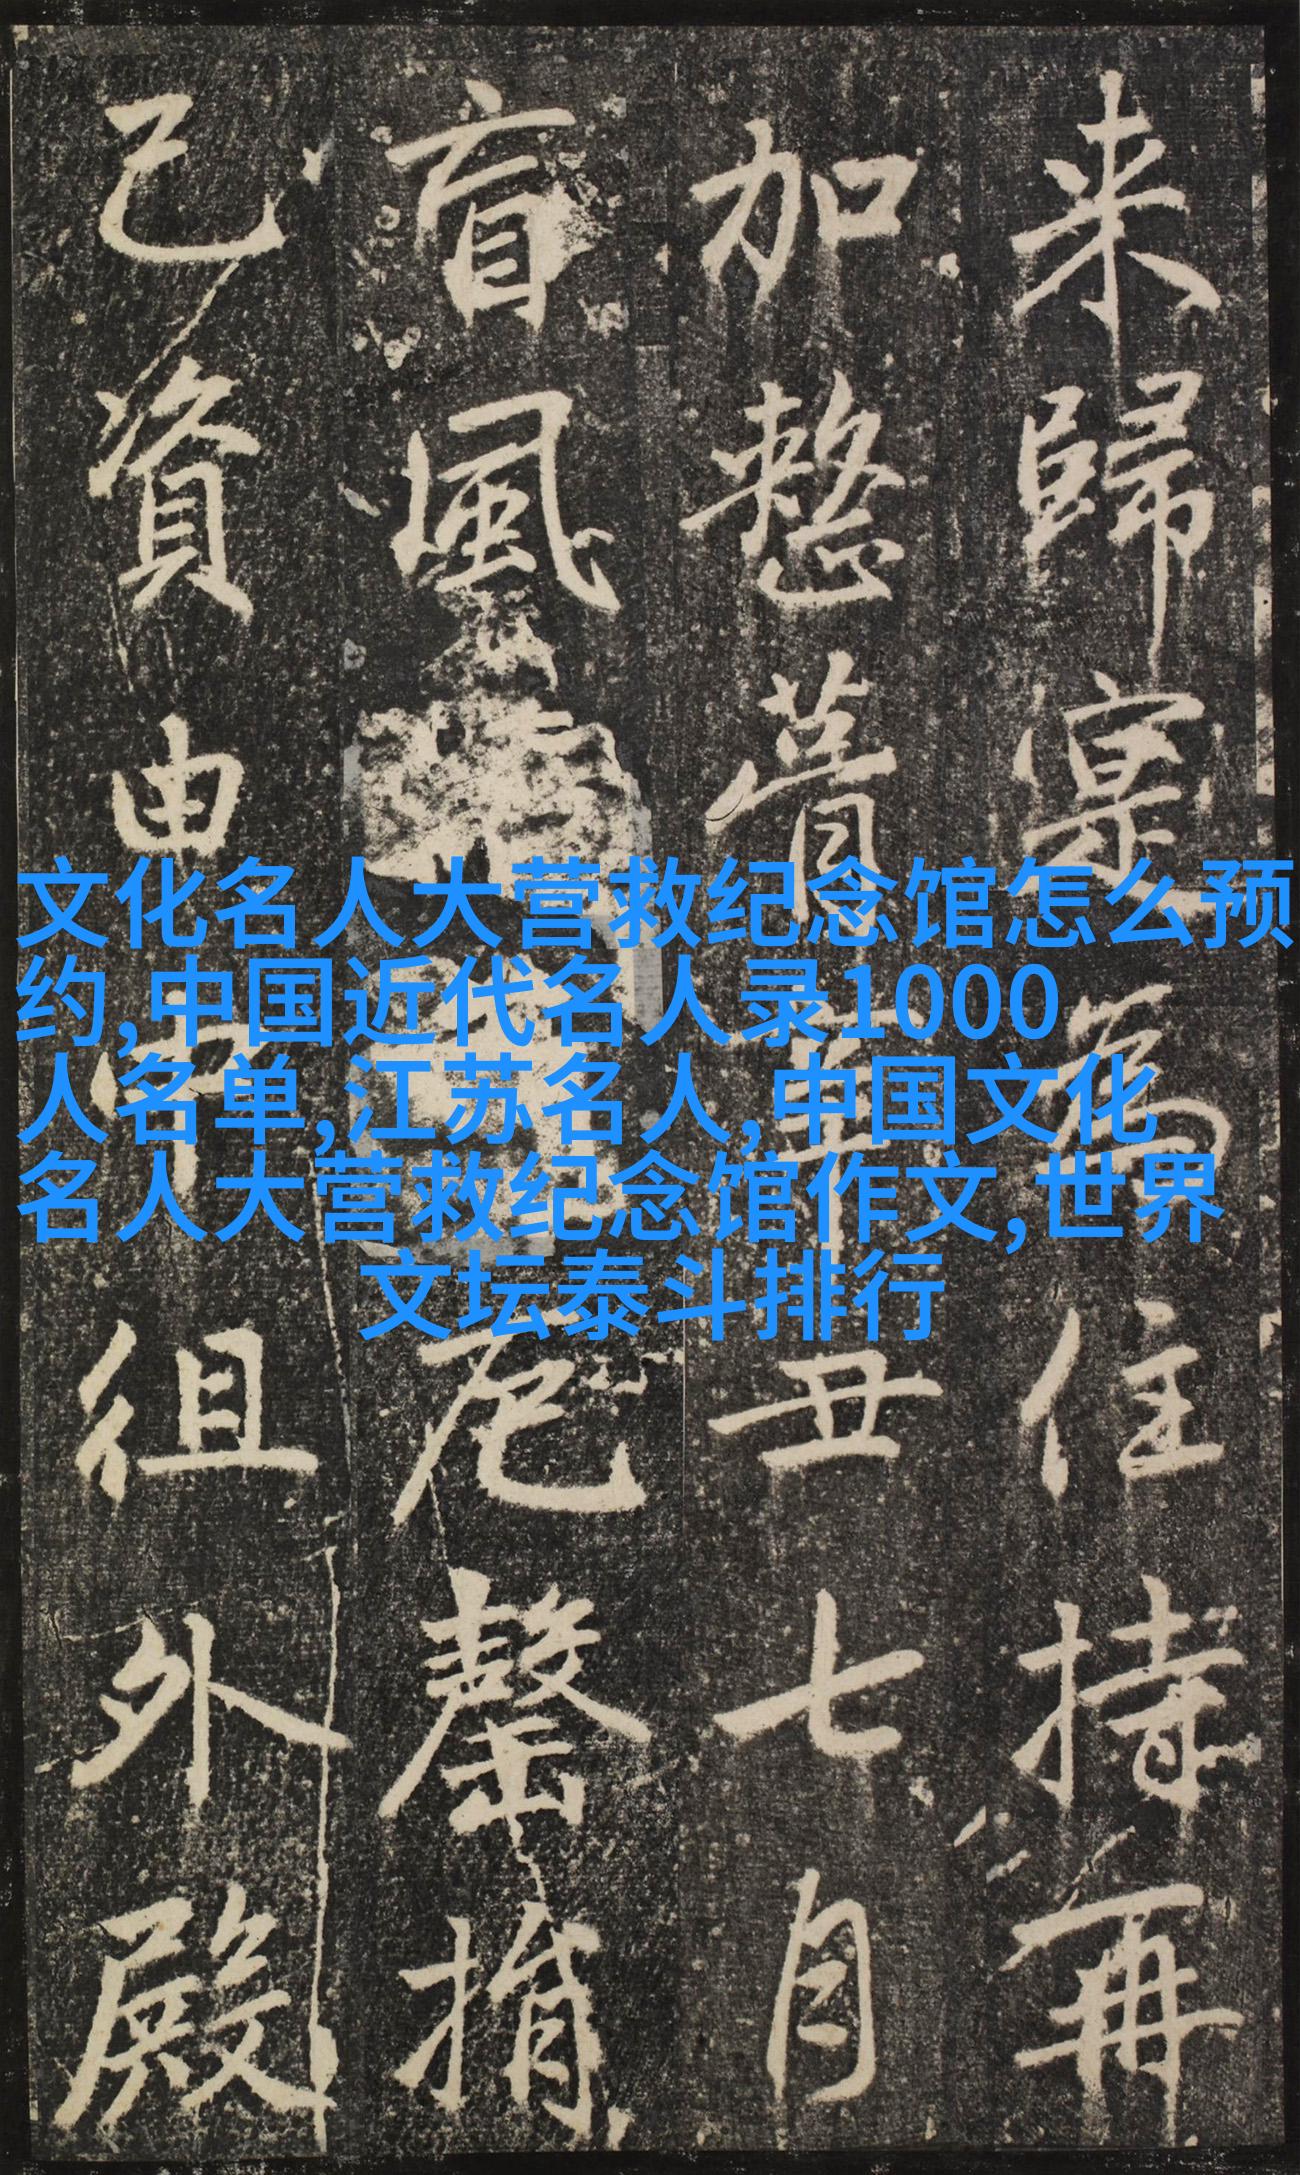 来歸寔為住持再
加整葺丑七月
盲風尼罄捐
己資由中徂外殿
文化名人大营救纪念馆怎么预
约,中国近代名人录1000
人名单,江苏名人,中国文化
名人大营救纪念馆作文,世界
文坛泰斗排行